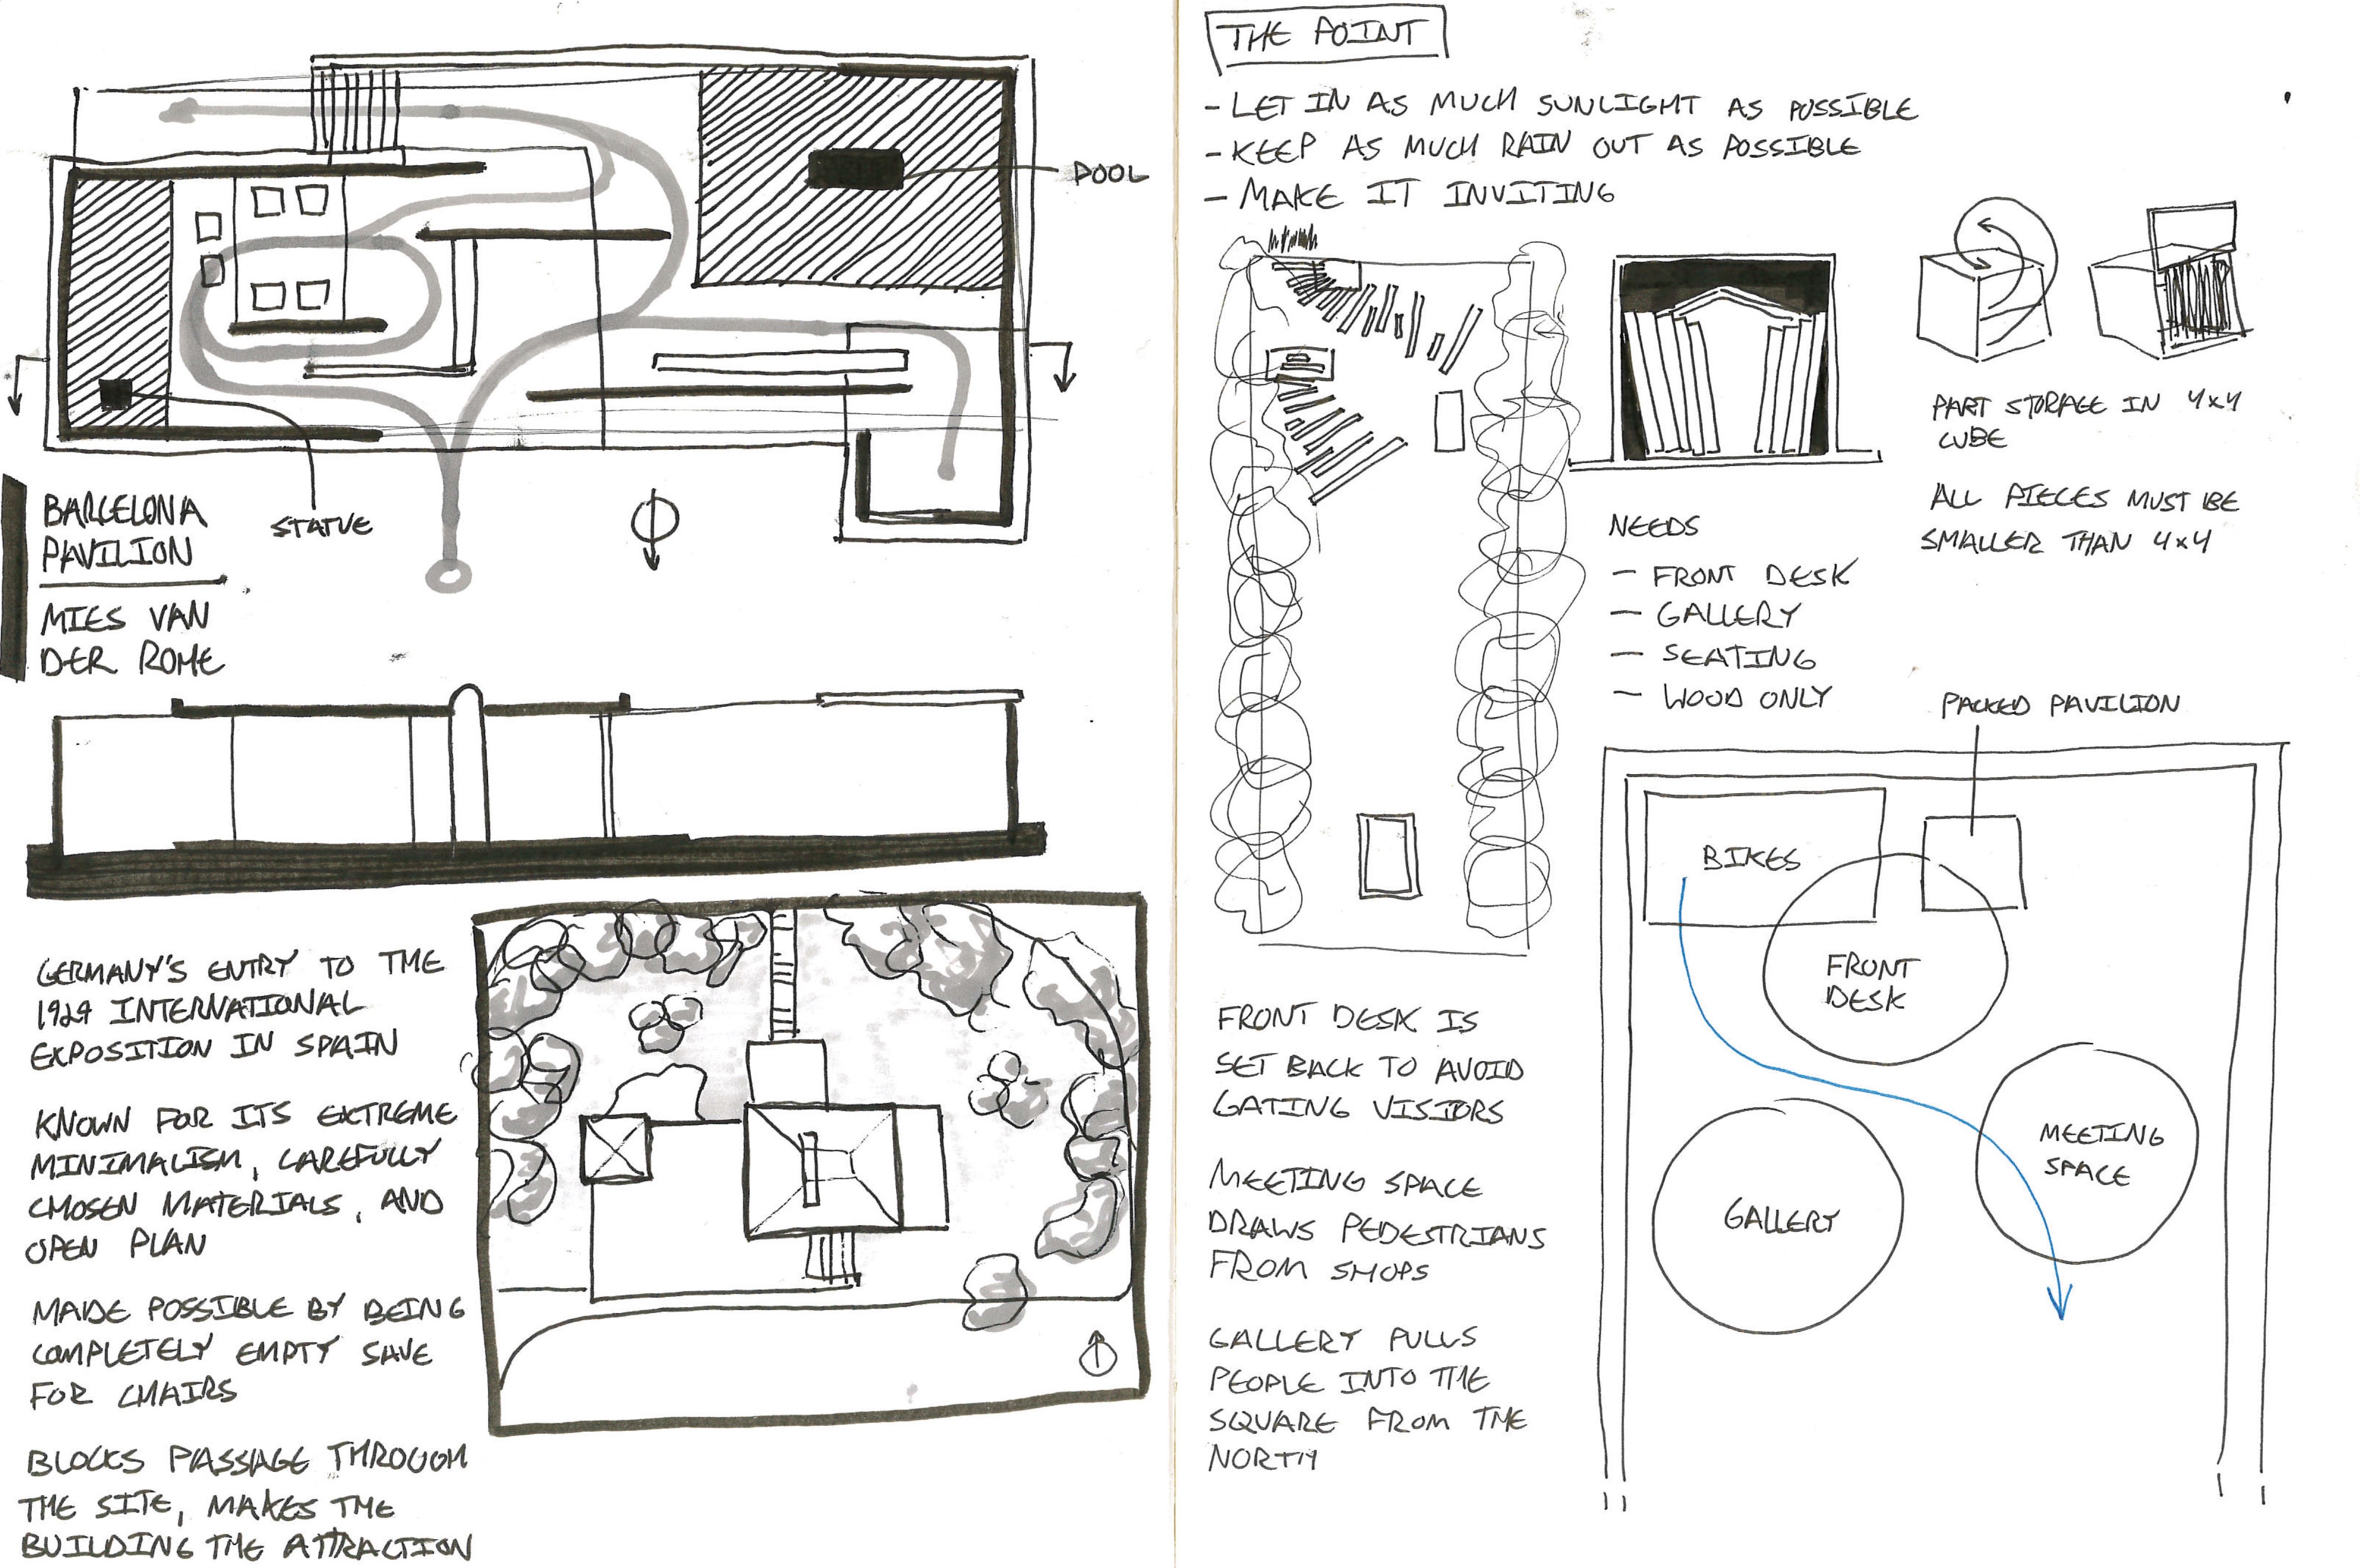 POOL
STATUE
BARCELONA
PAVILION
MIES VAN
DER ROHE
GERMANY'S ENTRY TO THE
1929 INTERNATIONAL
EXPOSITION IN SPAIN
KNOWN FOR ITS EXTREME
MINIMALISM, CAREFULLY
CHOSEN MATERIALS, AND
OPEN PLAN
MADE POSSIBLE BY BEING
COMPLETELY EMPTY SAVE
FOR CHAIRS
BLOCKS PASSAGE THROUGH
THE SITE, MAKES THE
BUILDING THE ATTRACTION
THE POINT
- LET IN AS MUCH SUNLIGHT AS POSSIBLE
- KEEP AS MUCH RAIN OUT AS POSSIBLE
- MAKE IT INVITING
PART STORAGE IN 4x4
CUBE
ALL PIECES MUST BE
SMALLER THAN 4x4
NEEDS
- FRONT DESK
- GALLERY
- SEATING
- WOOD ONLY
PACKED PAVILION
BIKES
FRONT
DESK
MEETING
SPACE
GALLERY
FRONT DESK IS
SET BACK TO AVOID
GATING VISITORS
MEETING SPACE
DRAWS PEDESTRIANS
FROM SHOPS
GALLERY PULLS
PEOPLE INTO THE
SQUARE FROM THE
NORTH